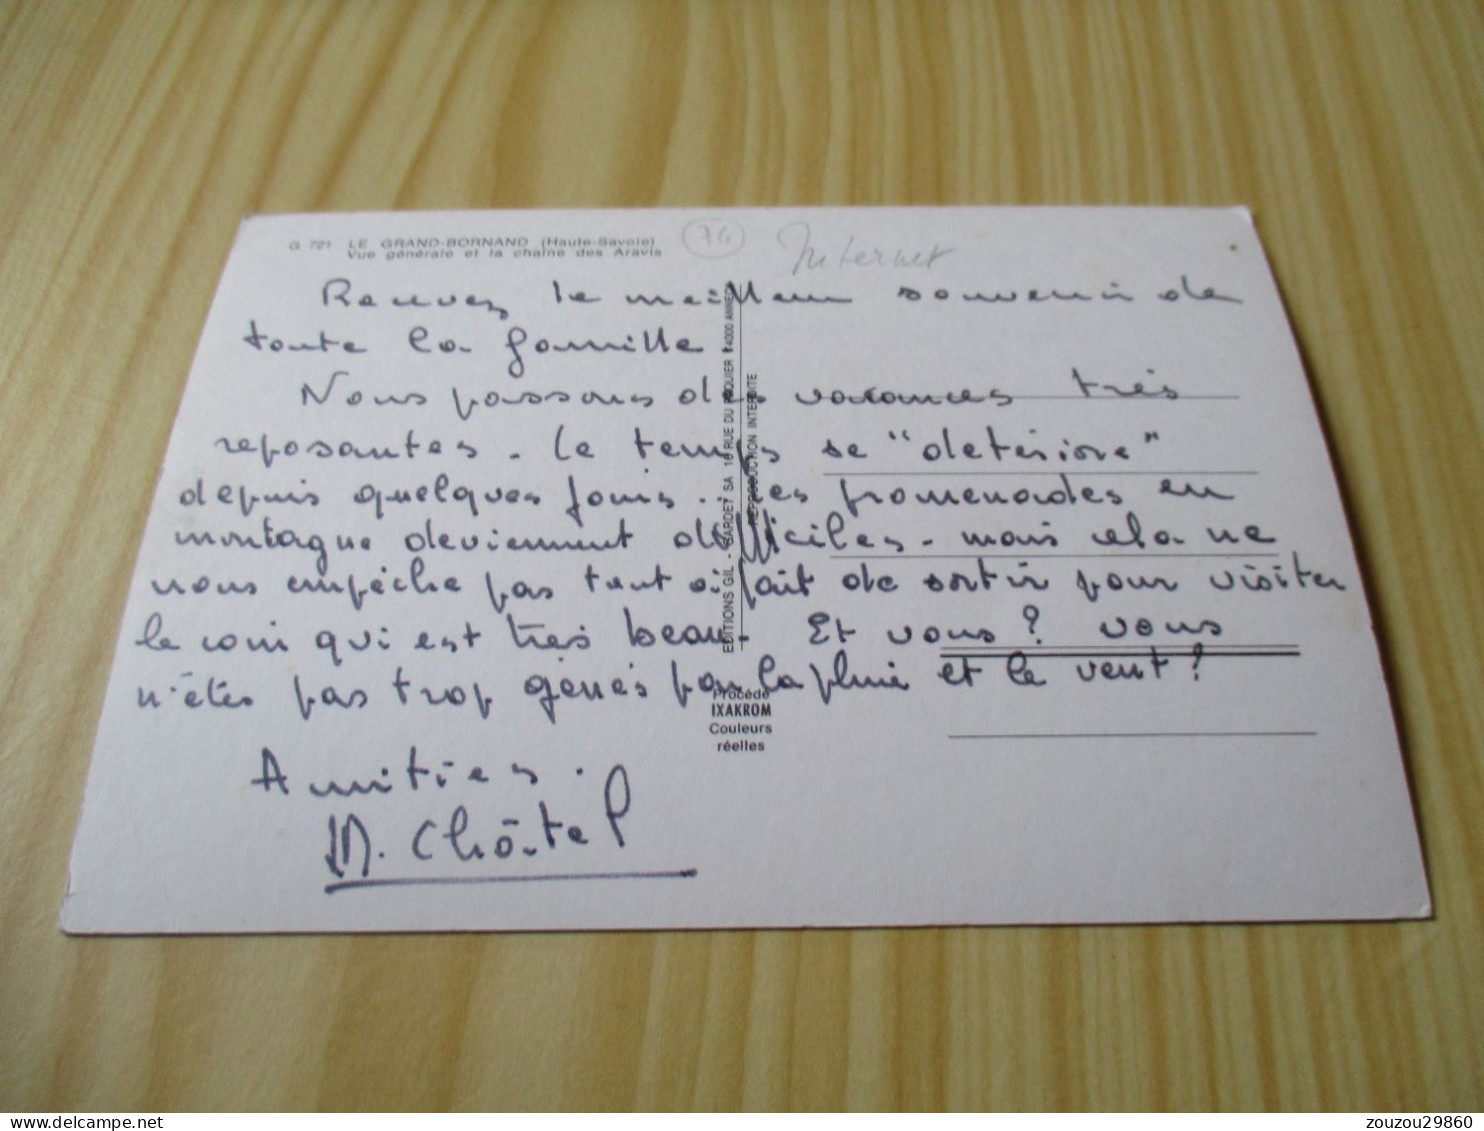 G 721 LE GRAND-BORNAND (Haute-Savoie)
Vue générale et la chaîne des Aravis
74
Internet
Recevez le meilleur souvenir de
toute la famille
Nous passons des vacances très
reposantes. Le temps se "détériore"
depuis quelques jours.. les promenades en
montagne deviennent difficiles. mais cela ne
nous empêche pas tout à fait de sortir pour visiter
le coin qui est très beau. Et vous? vous
n'êtes pas trop gênés par la pluie et le vent?
Amitiés.
M. Châtel
EDITIONS GIL - GARDET SA 16 RUE DU PAQUIER 74000 ANNECY
REPRODUCTION INTERDITE
Procédé
IXAKROM
Couleurs
réelles
zouzou29860
delcampe.net